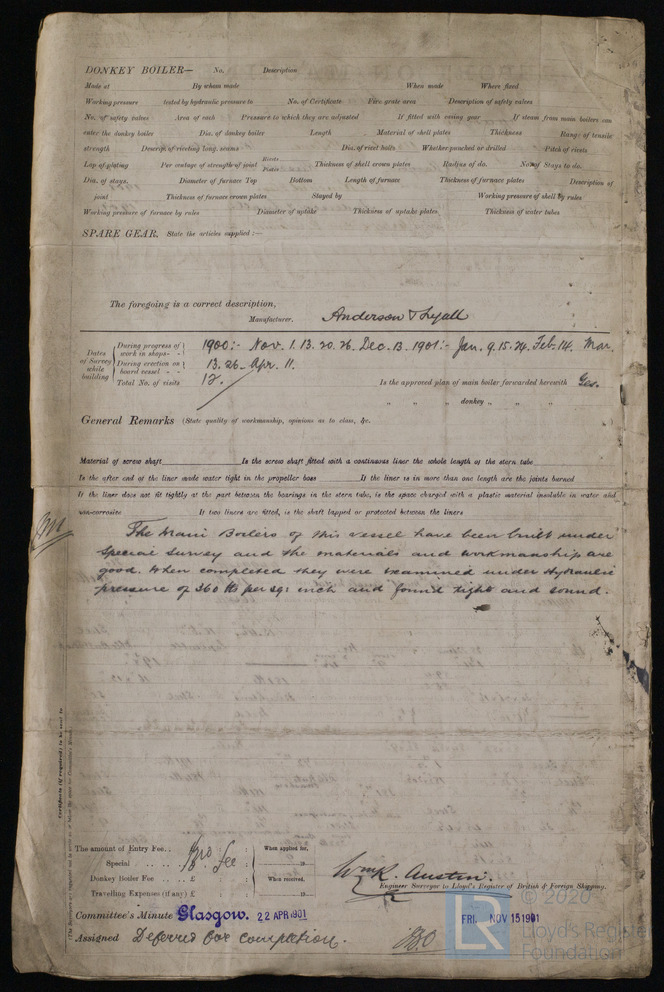 DONKEY BOILER— No. Description
Made at By whom made When made Where fixed
Working pressure tested by hydraulic pressure to No. of Certificate Fire grate area Description of safety valves
No. of safety valves Area of each Pressure to which they are adjusted If fitted with easing gear If steam from main boilers can
enter the donkey boiler Dia. of donkey boiler Length Material of shell plates Thickness Range of tensile
strength Descrip. of riveting long. seams Dia. of rivet holes Whether punched or drilled Pitch of rivets
Lap of plating Per centage of strength of joint Rivets Plates Thickness of shell crown plates Radius of do. No. of Stays to do.
Dia. of stays. Diameter of furnace Top Bottom Length of furnace Thickness of furnace plates Description of
joint Thickness of furnace crown plates Stayed by Working pressure of shell by rules
Working pressure of furnace by rules Diameter of uptake Thickness of uptake plates Thickness of water tubes
SPARE GEAR. State the articles supplied:—
The foregoing is a correct description,
Manufacturer. Anderson & Lyall
Dates of Survey while building
During progress of work in shops- - 1900:- Nov. 1. 13. 20. 26. Dec. 13. 1901:- Jan. 9. 15. 24. Feb. 14. Mar.
During erection on board vessel - - 13. 26- Apr. 11.
Total No. of visits 12. Is the approved plan of main boiler forwarded herewith Yes.
" " " donkey " " "
General Remarks (State quality of workmanship, opinions as to class, &c.
Material of screw shaft Is the screw shaft fitted with a continuous liner the whole length of the stern tube
Is the after end of the liner made water tight in the propeller boss If the liner is in more than one length are the joints burned
If the liner does not fit tightly at the part between the bearings in the stern tube, is the space charged with a plastic material insoluble in water and
non-corrosive If two liners are fitted, is the shaft lapped or protected between the liners
The Main Boilers of this vessel have been built under
Special Survey and the materials and workmanship are
good. When completed they were examined under Hydraulic
pressure of 360 lbs per sq: inch and found tight and sound.
Certificate (if required) to be sent to
The amount of Entry Fee. . £ No Fee : When applied for,
Special . . . . £
Donkey Boiler Fee . . . £ When received,
Travelling Expenses (if any) £
Wm R. Austin.
Engineer Surveyor to Lloyd's Register of British & Foreign Shipping.
Committee's Minute Glasgow. 22 APR 1901 FRI. NOV 15 1901
Assigned Deferred for completion.
LR
© 2020
Lloyd's Register
Foundation